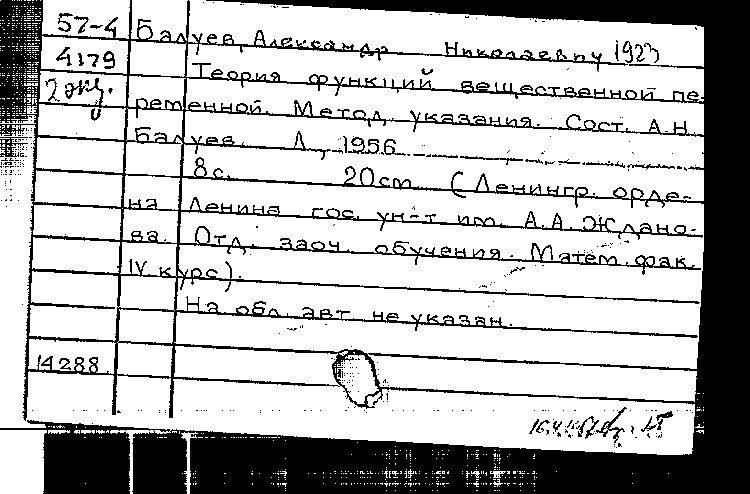 57-4 Балуев, Александр Николаевич 1923
4179 Теория функций вещественной пе-
2 экз. ременной. Метод. указания. Сост. А.Н.
Балуев. Л., 1956
8с. 20cm (Ленингр. орде-
на Ленина гос. ун-т им. А.А. Ждано-
ва. Отд. заоч. обучения. Матем. фак.
IV курс).
На обл. авт. не указан.
14288